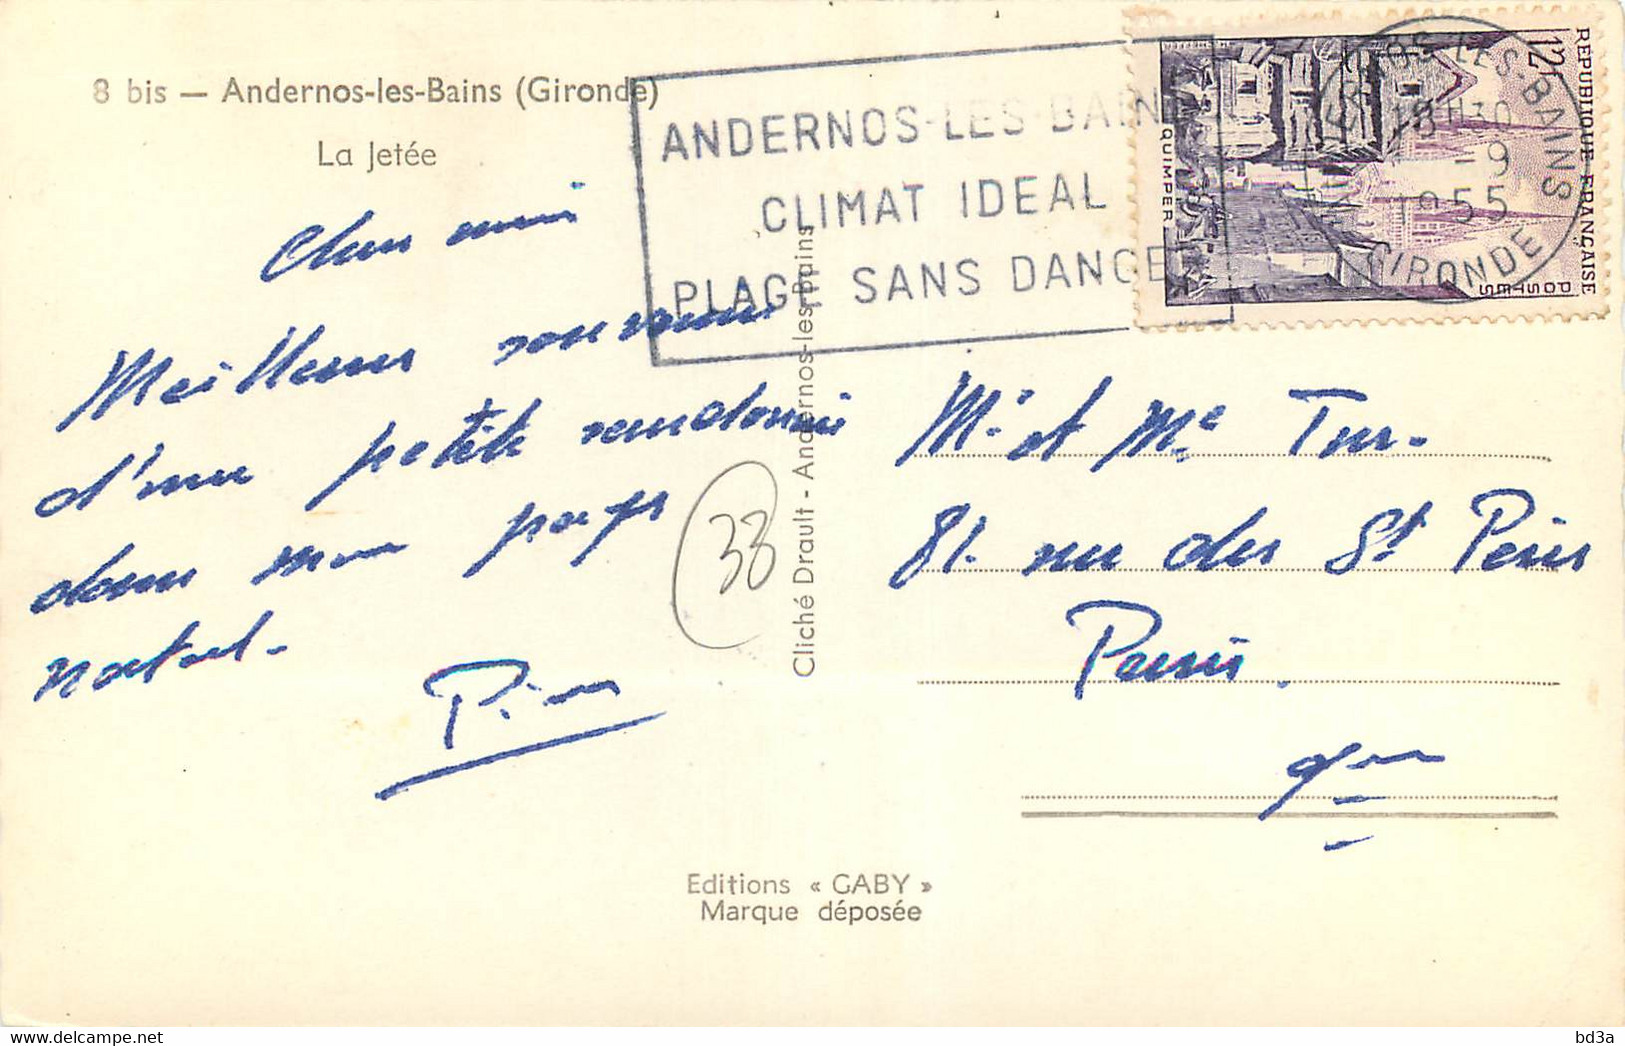 8 bis — Andernos-les-Bains (Gironde)
La Jetée
ANDERNOS-LES-BAINS
CLIMAT IDEAL
PLAGE SANS DANGE
12F
REPUBLIQUE FRANÇAISE
POSTES
QUIMPER
NOS-LES-BAINS
18H30
-9
1955
GIRONDE
Chers amis
Meilleurs souvenirs
d'une petite randonnée
dans mon pays
natal.
33
Cliché Drault - Andernos-les-Bains
Mr et Me
81. rue des St Pères
Paris.
Editions « GABY »
Marque déposée
bd3a